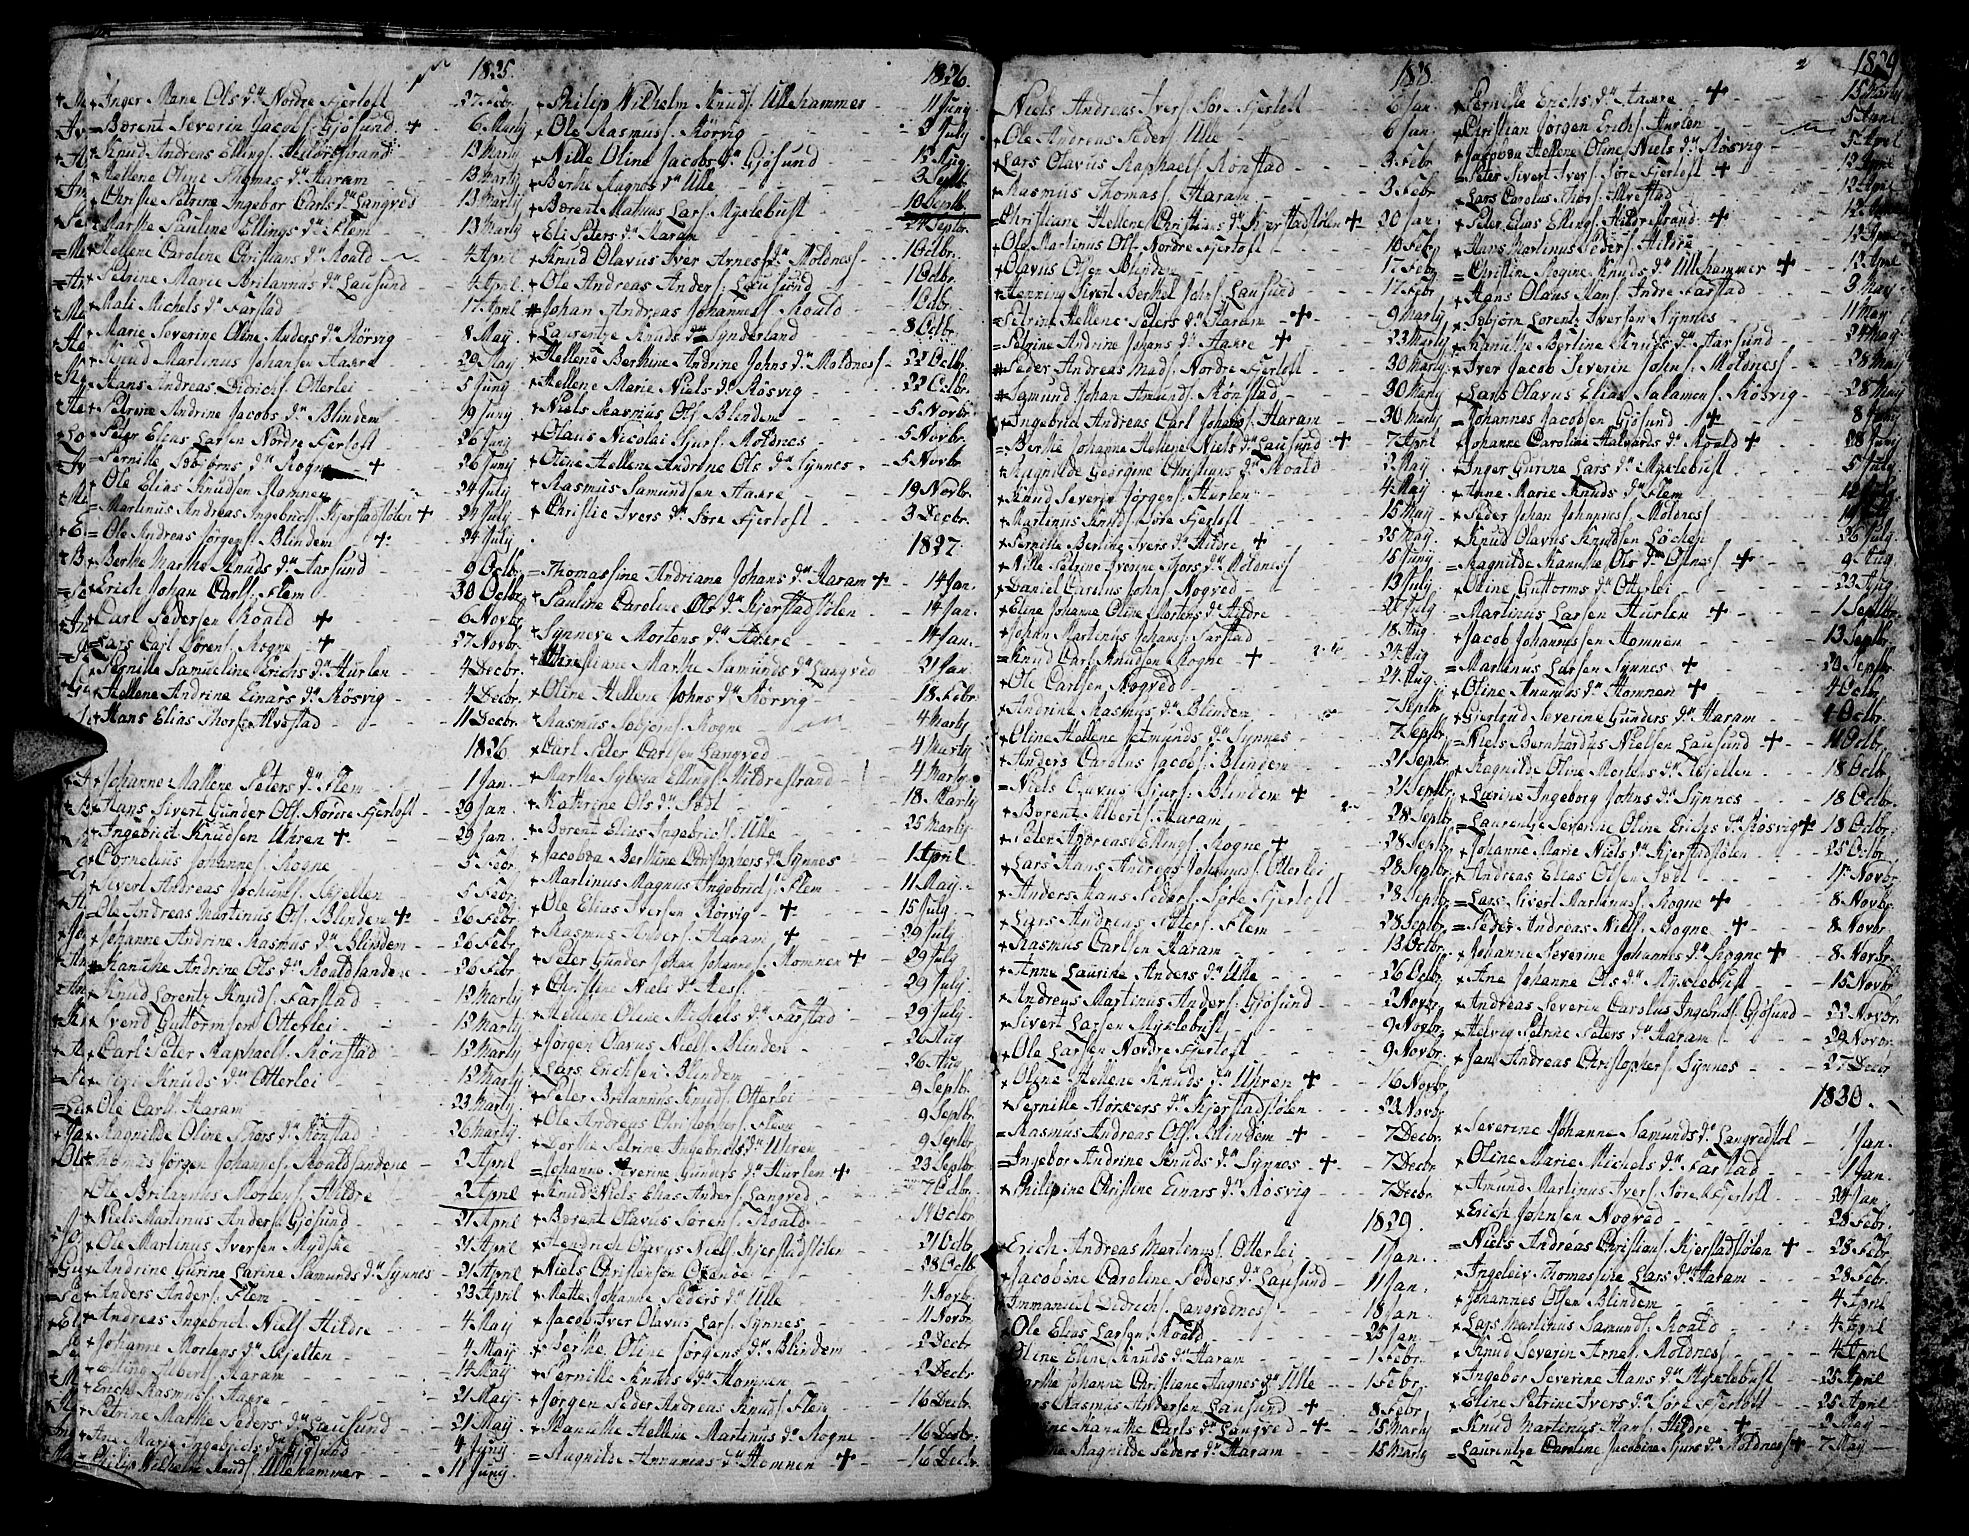 1825.
Inger Marie Ols dr Nordre Fjertoft 27 Febr.
Berent Severin Jacobs. Gjøsund + 6 Marty
Knud Andreas Ellings. Hildrestrand 13 Marty
Hellene Oline Thomas dr Haram 13 Marty
Christie Petrine Ingebor Carls dr Langved 13 Marty
Marthe Pauline Ellings dr Flem 13 Marty
Hellene Caroline Christians dr Roald 4 April
Petrine Marie Britannus dr Lausund 4 April
Mali Michels dr Farstad 17 April
Marie Severine Oline Anders dr Rørvig 8 May
Knud Martinus Johansen Aakre 29 May
Hans Andreas Didrichs. Otterlei 5 Juny
Petrine Andrine Jacobs dr Blindem 19 Juny
Peter Elias Larsen Nordre Fjertoft 26 Juny
Pernille Sæbjørns dr Rogne + 26 Juny
Ole Elias Knudsen Homnen 24 July
Martinus Andreas Ingebrigts. Kjerstadstølen + 24 July
Ole Andreas Jørgens. Blindem + 24 July
Berthe Marthe Knuds dr Aarsund 9 Octbr.
Erich Johan Carls. Flem 30 Octbr.
Carl Pedersen Roald + 6 Novbr.
Lars Carl Sørens. Rogne + 27 Novbr.
Pernille Samueline Erichs dr Hurlen 4 Decbr.
Hellene Andrine Einars dr Røsvig 4 Decbr.
Hans Elias Thors. Alvestad 11 Decbr.
1826
Johanne Mallene Peters dr Flem 1 Jan.
Hans Sivert Gunder Ols. Nordre Fjertoft 29 Jan.
Ingebrict Knudsen Uhren + 29 Jan.
Cornelius Johannes. Rogne 5 Febr.
Sivert Andreas Jochums. Skjelten 5 Febr.
Ole Andreas Martinus Ols. Blindem + 26 Febr.
Johanne Andrine Rasmus dr Blindem 26 Febr.
Haniche Andrine Ols dr Roaldsanden 26 Febr.
Knud Lorentz Knuds. Farstad 12 Marty
Svend Guttormsen Otterlei 12 Marty
Carl Peter Raphaels. Rønstad 12 Marty
Knuds dr Otterlei 12 Marty
Ole Carls. Haram 23 Marty
Magnilde Oline Thors dr Rønstad 26 Marty
Thomas Jørgen Johannes. Roaldsandene 2 April
Ole Britannus Mortens. Hildre 2 April
Niels Martinus Anders. Gjøsund 21 April
Ole Martinus Iversen 21 April
Andrine Gurine Larine Samunds dr Synnes 21 April
Anders Anders. Flem 23 April
Andreas Ingebrict Niels. Hildre 4 May
Johanne Mortens dr Skjelten 4 May
Elling Alberts. Haram 14 May
Erich Rasmus. Aakre 21 May
Petrine Marthe Peders dr Lausund 21 May
Ane Marie Ingebricts dr Gjøsund 4 Juny
Philip Wilhelm Knuds. Ullehammer 11 Juny
1826.
Philip Wilhelm Knuds. Ullehammer 11 Juny
Ole Rasmus. Rørvig 2 July
Nille Oline Jacobs dr Gjøsund 13 Aug.
Berthe Aagnes dr Ulle 3 Septb.
Berent Mathias Lars. Myklebust 10 Septbr.
Eli Peters dr Haram 24 Septbr.
Knud Olavus Iver Arnes dr Moldnes 1 Octbr.
Ole Andreas Anders. Lausund 1 Octbr.
Johan Andreas Johannes. Roald 1 Octbr.
Laurentze Knuds dr Synderland 8 Octbr.
Hellene Berthine Andrine Johns dr Moldnes 22 Octbr.
Hellene Marie Niels dr Røsvig 22 Octbr.
Niels Rasmus Ols. Blindem 5 Novbr.
Olaus Nicolai Sjurs. Moldnes 5 Novbr.
Oline Hellene Andrine Ols dr Synnes 5 Novbr.
Rasmus Samundsen Aakre 19 Novbr.
Christie Ivers dr Søre Fjertoft 3 Decbr.
1827.
Thomassine Andriane Johans dr Haram + 14 Jan.
Pauline Caroline Ols dr Kjerstadstølen 14 Jan.
Synneve Mortens dr Aakre 14 Jan.
Christiane Marthe Samunds dr Langved 21 Jan.
Oline Hellene Johns dr Rørvig 18 Febr.
Rasmus Sæbjørns. Rogne 4 Marty
Carl Peter Carlsen Langved 4 Marty
Marthe Sylvia Ellings. Hildrestrand 4 Marty
Kathrine Ols dr Sædt 18 Marty
Berent Elias Ingebricts. Ulle 25 Marty
Jacobea Berthine Christophers dr Synnes 1 April
Martinus Magnus Ingebricts. Flem 11 May
Ole Elias Iversen Rørvig + 15 July
Rasmus Anders. Haram + 29 July
Peter Gunder Johan Johannes. Homnen + 29 July
Christine Niels dr Hess 29 July
Hellene Oline Michels dr Farstad 29 July
Jørgen Olavus Niels. Blindem 26 Aug.
Lars Erichsen Blindem 26 Aug.
Peter Britannus Knuds. Otterlei 9 Septbr.
Ole Andreas Christophers. Flem 9 Septbr.
Dorthe Petrine Ingebricts dr Uhren 9 Septbr.
Johanne Severine Gunders dr Hurlen + 23 Septbr.
Knud Niels Elias Anders. Langved 7 Octbr.
Berent Olavus Sørens. Roald 14 Octbr.
Hendrich Olavus Niels. Kjerstadstølen 21 Octbr.
Niels Christensen 28 Octb.
Mette Johanne Peders dr Ulle 4 Novbr.
Jacob Iver Olavus Lars. Synnes 11 Novbr.
Berthe Oline Jørgens dr Blindem 2 Decbr.
Pernille Knuds dr Homnen 2 Decbr.
Jørgen Peder Andreas Knuds. Flem 16 Decbr.
Hanniche Hellene Martinus dr Rogne 16 Decbr.
Magnilde Annanias dr Homnen + 16 Decbr.
1828
Niels Andreas Ivers. Søre Fjertoft 6 Jan.
Ole Andreas Peders. Ulle 6 Jan.
Lars Olavus Raphaels. Rønstad 3 Febr.
Rasmus Thomas. Haram 3 Febr.
Christiane Hellene Christians dr Kjerstadstølen + 20 Jan.
Ole Martinus Ols. Nordre Fjertoft 10 Febr.
Olavus Olsen Blindem 17 Febr.
Henning Sivert Berthel Johns. Lausund 17 Febr.
Petrine Hellene Peters dr Haram + 9 Marty
Petrine Andrine Johans dr Aakre + 23 Marty
Peder Andreas Mads. Nordre Fjertoft 30 Marty
Samund Johan Amunds. Rønstad 30 Marty
Ingebrict Andreas Carl Johans. Haram 30 Marty
Berthe Johanne Hellene Niels dr Lausund + 7 April
Magnilde Georgine Christians dr Roald 2 May
Knud Severin Jørgens. Hurlen 4 May
Martinus Knuds. Søre Fjertoft 15 May
Pernille Berline Ivers dr Hildre + 25 May
Nille Petrine Sjurs dr Moldnes 15 Juny
Daniel Carolus Johns. Nogved 13 July
Eline Johanne Oline Mortens dr Hildre 27 July
Johan Martinus Johans. Farstad 18 Aug
Knud Carl Knudsen Rogne + 24 Aug
Ole Carlsen Nogved 24 Aug.
Andrine Rasmus dr Blindem 7 Septbr
Oline Hellene Setmunds dr Synnes 7 Septbr
Anders Carolus Jacobs. Blindem 21 Septbr
Niels Olavus Sjurs. Blindem + 21 Septbr.
Berent Albert. Haram 28 Septbr
Peter Andreas Ellings. Rogne + 28 Septbr.
Lars Hans Andreas Johannes. Otterlei 28 Septbr.
Anders Hans Peders. Søre Fjertoft 28 Septbr.
Lars Andreas Peters. Flem 28 Septbr.
Rasmus Carlsen Haram 13 Octbr.
Anne Laurine Anders dr Ulle 26 Octbr.
Andreas Martinus Anders. Gjøsund 2 Novbr
Sivert Larsen Myklebust 9 Novbr
Ole Larsen Nordre Fjertoft 9 Novbr.
Oline Hellene Knuds dr Uhren + 16 Novbr
Pernille dr Kjerstadstølen 23 Novbr.
Rasmus Andreas Ols. Blindem + 7 Decbr.
Ingebor Andrine Knuds dr Synnes + 7 Decbr.
Philipine Christine Einars dr Røsvig 7 Decbr.
1829.
Erich Andreas Martinus. Otterlei 1 Jan.
Jacobine Caroline Peders dr Lausund 11 Jan.
Immanuel Didrichs. Langvednes 18 Jan.
Ole Elias Larsen Roald 25 Jan
Oline Eline Knuds dr Haram 1 Febr.
Marthe Johanne Christiane Aagnes dr Ulle 1 Febr.
Rasmus Andersen Lausund + 8 Febr.
Hanniche Carls dr Langved + 15 Marty
Magnilde Peders dr Haram 15 Marty
2
1829
Pernille Erichs dr Aakre + 15 Marty
Christian Jørgen Erichs. Hurlen 5 April
Jacobea Hellene Oline Niels dr Røsvig 5 April
Peter Sivert Ivers. Søre Fjertoft + 12 April
Lars Carolus Thors. Alvestad 12 April
Peter Elias Ellings. Hildrestrand + 12 April
Hans Martinus Peders. Hildre 12 April
Christine Regine Knuds dr Ullehammer + 12 April
Hans Olaus Hans. Indre Farstad 3 May
Sæbjørn Lorentz Iversen Synnes 11 May
Hanniche Berline Knuds dr Aarsund 24 May
Iver Jacob Severin Johns. Moldnes 28 May
Lars Olavus Elias Salamons. Røsvig 28 May
Johannes Jacobsen Gjøsund + 8 Juny
Johanne Caroline Halvards dr Roald + 28 Juny
Inger Gurine Lars dr Myklebust 5 July
Anne Marie Knuds dr Flem 12 July
Peder Johan Johannes. Moldnes 19 July
Knud Olavus Knudsen Løchen 26 July
Magnilde Hanniche Ols dr Ostnes + 9 Aug
Oline Guttorms dr Otterlei 23 Aug
Martinus Larsen Hurlen + 1 Septbr.
Jacob Johannesen Homnen 13 Septbr.
Martinus Larsen Synnes + 20 Septbr
Oline Ananias dr Homnen + 4 Octbr.
Gjertrud Severine Gunders dr Haram 4 Octbr.
Niels Bernhardus Nielsen Lausund + 11 Octbr.
Magnilde Oline Mortens dr Skjelten 18 Octbr.
Larine Ingeborg Johns dr Synnes 18 Octbr.
Laurentze Severine Oline Erichs dr Røsvig + 18 Octbr.
Johanne Marie Niels dr Kjerstadstølen 25 Octbr
Andreas Elias Olsen Sædt 1 Novbr
Lars Sivert Martinus. Rogne + 8 Novbr.
Peder Andreas Niels. Rogne + 8 Novbr.
Johanne Severine Johannes dr Rogne + 8 Novbr.
Ane Johanne Ols dr Myklebust 15 Novbr
Andreas Severin Carolus Ingebricts. Gjøsund 22 Novbr.
Helvig Petrine Peters dr Haram 29 Novbr.
Jan Andreas Christophers. Synnes 27 Decbr
1830.
Severine Johanne Samunds dr Langvedstøl 1 Jan.
Oline Marie Michels dr Farstad 1 Jan.
Amund Martinus Ivers. Søre Fjertoft 24 Jan.
Erich Johnsen Nogved 28 Febr.
Niels Andreas Christians. Kjerstadstølen + 28 Febr.
Ingeleiv Thomassine Lars dr Haram 28 Febr.
Johannes Olsen Blindem 4 April
Lars Martinus Samunds. Roald 4 April
Knud Severin Arnes. Moldnes 4 April
Ingebor Severine Hans dr Myklebust 25 April
Eline Petrine Ivers dr Søre Fjertoft 25 April
Knud Martinus Hans. Hildre + 2 May
Laurentze Caroline Jacobine Sjurs dr Moldnes + 7 May